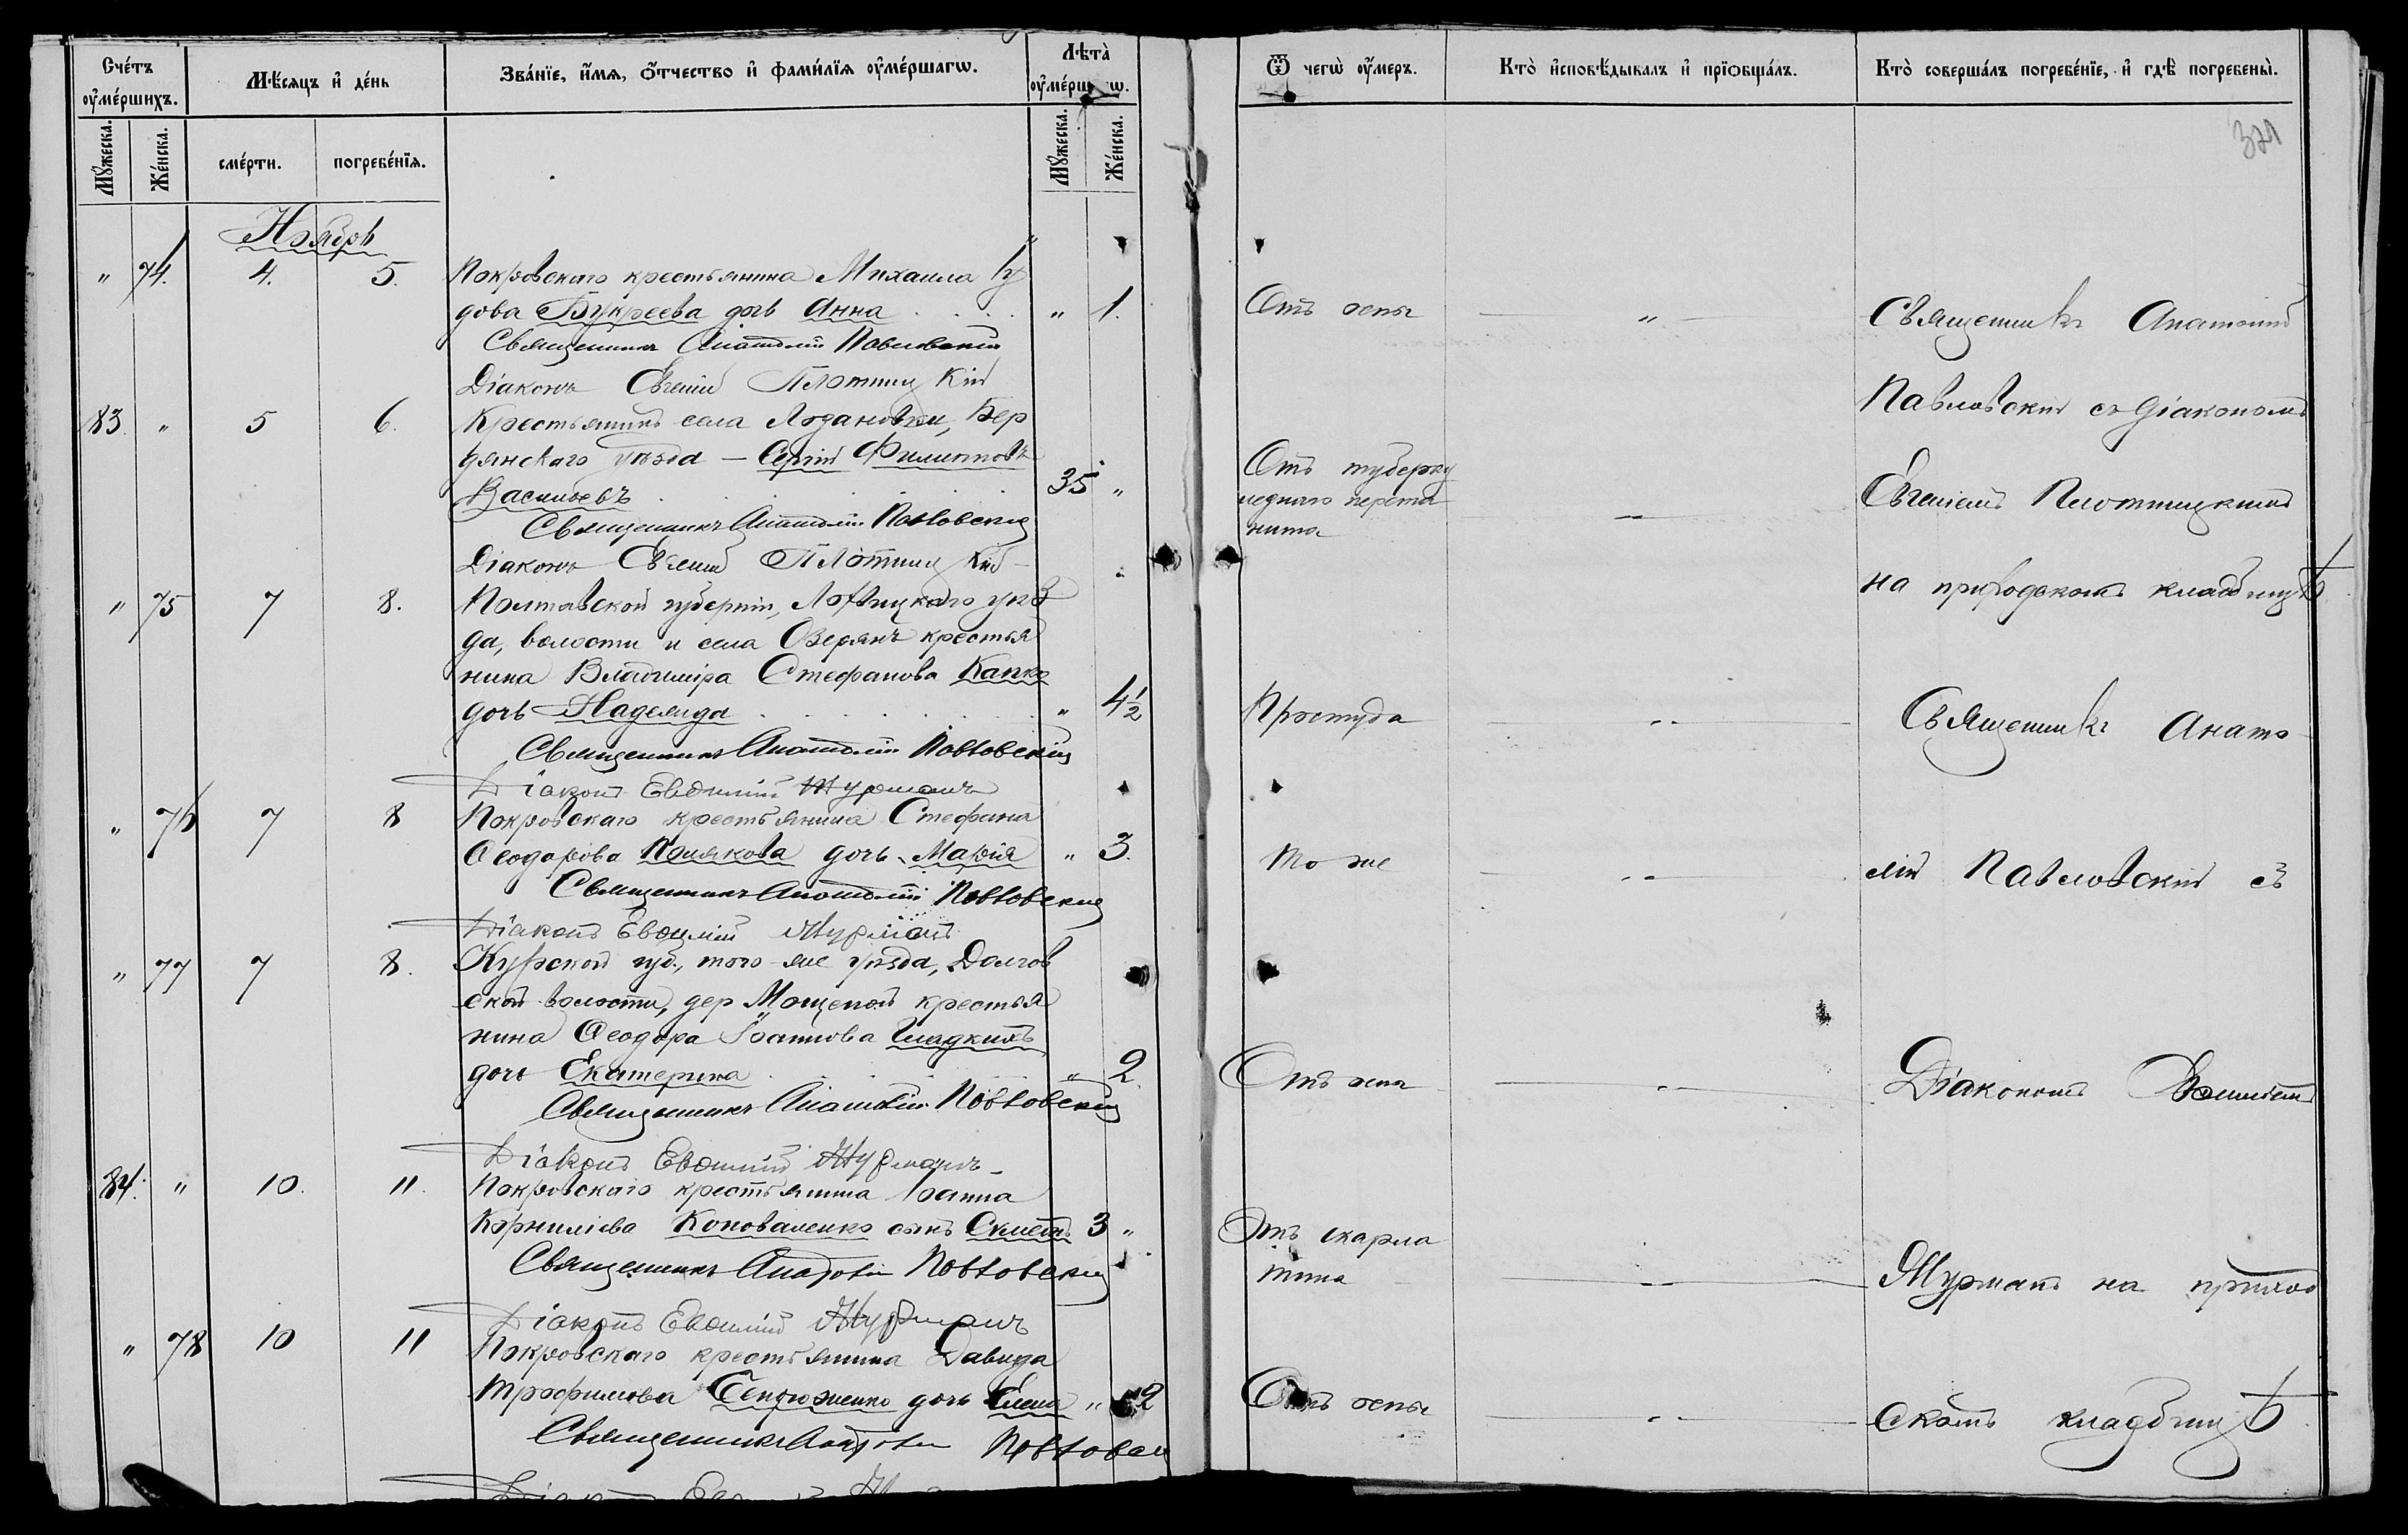 Счетъ оумершихъ.
Мѣсяцъ и день
Званіе, имя, отчество и фамилія оумершагѡ.
Лѣта оумершагѡ.
Мужеска. Женска.
смерти. погребенія.
Мужеска. Женска.
Ѿ чегѡ оумеръ.
Кто исповѣдывалъ и пріобщалъ.
Кто совершалъ погребеніе, и гдѣ погребены.
371
Ноябрь
" 74. 4. 5. Покровскаго крестьянина Михаила
дова Букреева дочь Анна " 1.
Священникъ Анатолій Павловскій
Діаконъ Евгеній Плотницкій
83 " 5 6. Крестьянинъ села Лозановки, Бер
дянскаго уѣзда — Сергій Филипповъ
Васильевъ 35 "
Священникъ Анатолій Павловскій
Діаконъ Евгеній Плотницкій
" 75 7 8. Полтавской губерніи, Лохвицкаго уѣз
да, волости и села Озерянъ крестья
нина Владиміра Стефанова Капко
дочь Надежда " 4½
Священникъ Анатолій Павловскій
Діаконъ Евѳимій Журманъ
" 76 7 8 Покровскаго крестьянина Стефана
Ѳеодорова Полякова дочь Марія " 3.
Священникъ Анатолій Павловскій
Діаконъ Евѳимій Журманъ
" 77 7 8. Курской губ., того-же уѣзда, Долгов
ской волости, дер Мощеной крестья
нина Ѳеодора Іоаннова Гладкихъ
дочь Екатерина " 2.
Священникъ Анатолій Павловскій
Діаконъ Евѳимій Журманъ
84. " 10. 11. Покровскаго крестьянина Іоанна
Корниліева Коноваленко сынъ 3 "
Священникъ Анатолій Павловскій
Діаконъ Евѳимій Журманъ
" 78 10 11 Покровскаго крестьянина Давида
Трофимова дочь Елена " 2
Священникъ Анатолій Павловскій
Отъ оспы "
Отъ туберку
лезнаго перето
нита
Простуда
То же
Отъ оспы
Отъ скарла
тина
Отъ оспы
Священникъ Анатолій
Павловскій съ діакономъ
Евгеніемъ Плотницкимъ
на приходскомъ кладбищѣ
Священникъ Анато
лій Павловскій съ
Діакономъ Евѳиміемъ
Журманъ на приход
скомъ кладбищѣ